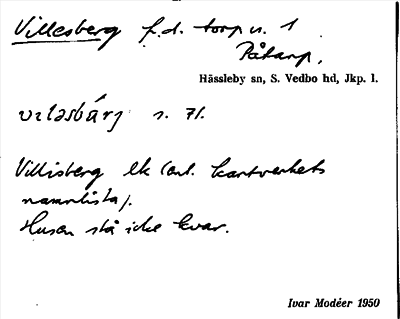 Villesberg f.d. torp u. 1
Påtarp.
Hässleby sn, S. Vedbo hd, Jkp. l.
vɩləsbárj s. 71.
Villisberg lk (enl. kartverkets
namnlista).
Husen stå icke kvar.
Ivar Modéer 1950